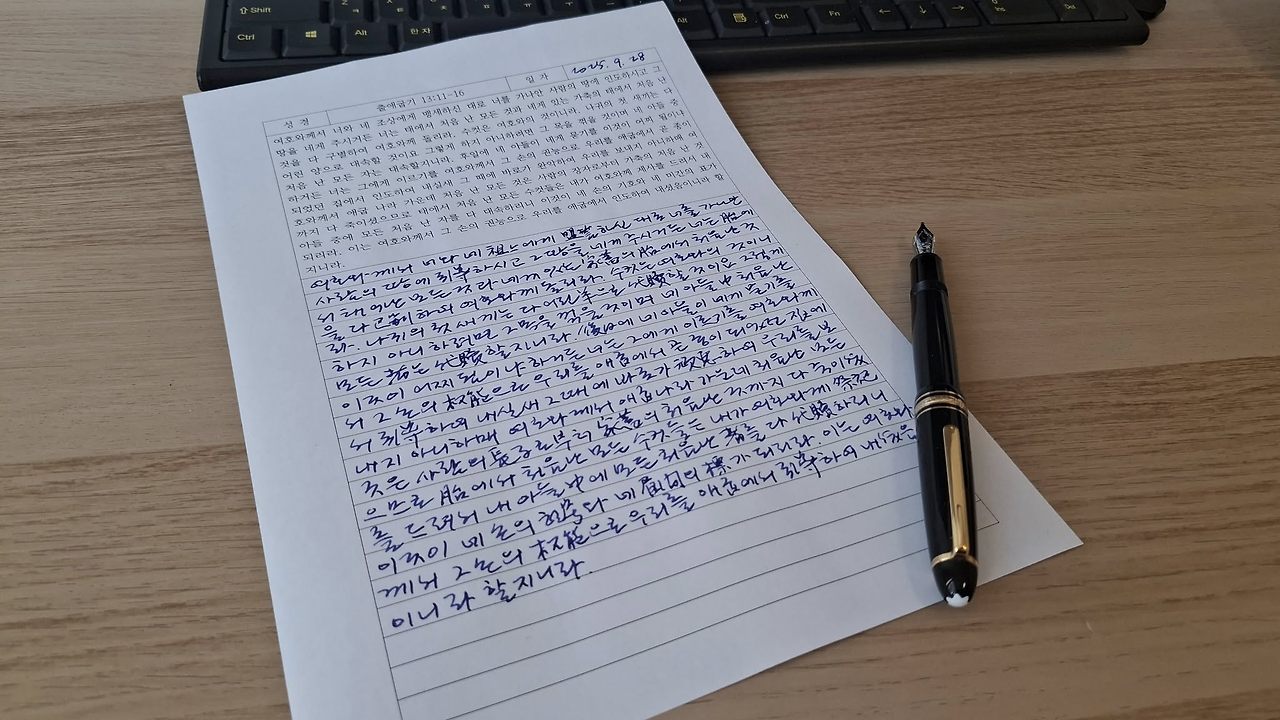 Shift
Ctrl Alt 한자 Alt Ctrl Fn
성 경 출애굽기 13:11-16 일 자 2025. 9. 28
여호와께서 너와 네 조상에게 맹세하신 대로 너를 가나안 사람의 땅에 인도하시고 그
땅을 네게 주시거든 너는 태에서 처음 난 모든 것과 네게 있는 가축의 태에서 처음 난
것을 다 구별하여 여호와께 돌리라 수컷은 여호와의 것이니라 나귀의 첫 새끼는 다
어린 양으로 대속할 것이요 그렇게 하지 아니하려면 그 목을 꺾을 것이며 네 아들 중
처음 난 모든 자는 대속할지니라 후일에 네 아들이 네게 묻기를 이것이 어찌 됨이냐
하거든 너는 그에게 이르기를 여호와께서 그 손의 권능으로 우리를 애굽에서 곧 종이
되었던 집에서 인도하여 내실새 그 때에 바로가 완악하여 우리를 보내지 아니하매 여
호와께서 애굽 나라 가운데 처음 난 모든 것은 사람의 장자로부터 가축의 처음 난 것
까지 다 죽이셨으므로 태에서 처음 난 모든 수컷들은 내가 여호와께 제사를 드려서 내
아들 중에 모든 처음 난 자를 다 대속하리니 이것이 네 손의 기호와 네 미간의 표가
되리라 이는 여호와께서 그 손의 권능으로 우리를 애굽에서 인도하여 내셨음이니라 할
지니라
여호와께서 너와 네 에게 하신 대로 너를 가나안
사람의 땅에 하시고 그 땅을 네게 주시거든 너는 胎에
서 처음 난 모든 것과 네게 있는 家畜의 胎에서 처음 난 것
을 다 하여 여호와께 돌리라. 수컷은 여호와의 것이니
라. 나귀의 첫 새끼는 다 어린 羊으로 代贖할 것이요 그렇게
하지 아니 하려면 그 목을 꺾을 것이며 네 아들 中 처음 난
모든 者는 代贖할지니라. 後日에 네 아들이 네게 묻기를
이것이 어찌 됨이냐 하거든 너는 그에게 이르기를 여호와께
서 그 손의 權能으로 우리를 애굽에서 곧 종이 되었던 집에
서 하여 내실새 그 때에 바로가 하여 우리를 보
내지 아니하매 여호와께서 애굽 나라 가운데 처음 난 모든
것은 사람의 長子로부터 家畜의 처음 난 것까지 다 죽이셨
으므로 胎에서 처음 난 모든 수컷들은 내가 여호와께 祭祀
를 드려서 내 아들 中에 모든 처음 난 者를 다 代贖하리니
이것이 네 손의 다 네 眉間의 標가 되리라. 이는 여호와
께서 그 손의 權能으로 우리를 애굽에서 하여 내셨음
이니라 할지니라.